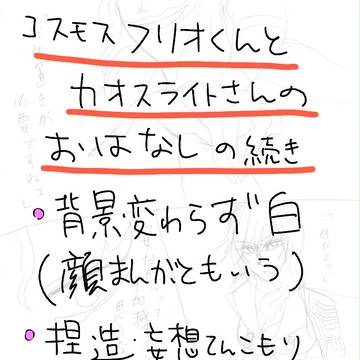 コスモスフリオくんと
カオスライトさんの
おはなしの続き
・背景変わらず白
(顔まんがともいう)
・捏造・妄想てんこもり